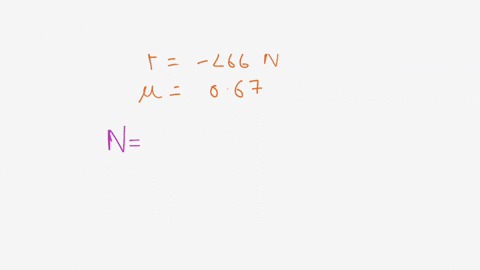 = -266 N
μ = 0.67
N=